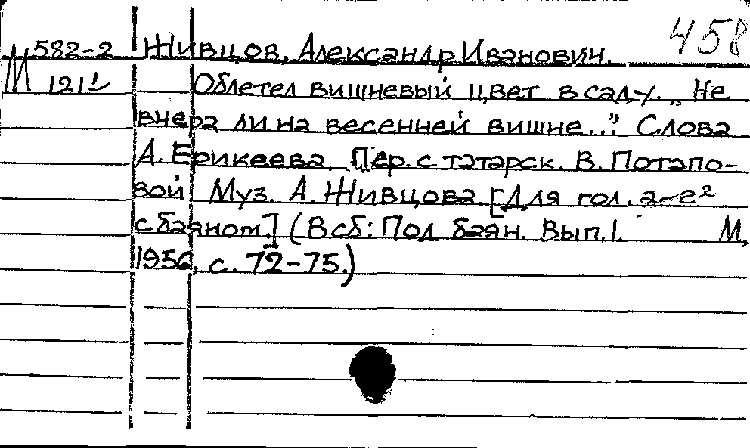 458
М 582-2 Живцов, Александр Иванович.
121 1
Облетел вишневый цвет в саду. „Не
вчера ли на весенней вишне..." Слова
А. Ерикеева Пер. с татарск. В. Потапо-
вой Муз. А. Живцова [Для гол. a-e²
с баяном.] (В сб: Под баян. Вып. 1. М,
1956, с. 72-75.)